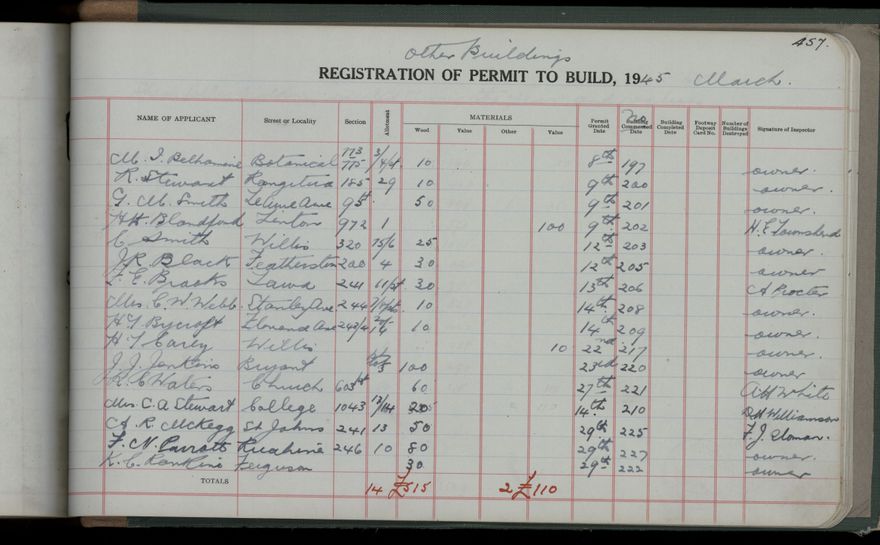 457.
Other Buildings
REGISTRATION OF PERMIT TO BUILD, 1945 March.
NAME OF APPLICANT Street or Locality Section Allotment MATERIALS Wood Value Other Value Permit Granted Date Building Commenced Date No Building Completed Date Footway Deposit Card No. Number of Buildings Destroyed Signature of Inspector
M. J. Botanical 773 775 3/ 10 8th 197 owner.
R. Stewart Rangitira 185 29 10 9th 200 owner.
G. M. Smith Ave 95 50 9th 201 owner.
H.H. Blandford Linton 972 1 100 9th 202 H. E. Townshend
C Smith Willis 320 15/6 25 12th 203 owner.
J R. Black Featherston 200 4 30 12th 205 owner
F. E. Brooks 241 30 13th 206 A Procter
Mrs. C. W. Webb Stanley Ave 244 10 14th 208 owner.
H J Bycroft Ave 10 14 209 owner.
H. J Carey Willis 10 22nd 217 owner.
J. J. Jenkins Bryant 100 23rd 220 owner
R C Waters Church 603 60 27th 221 A H White
Mrs. C. A Stewart College 1043 13/14 14th 210 D H Williamson
A. R. McKegg St Johns 241 13 50 29th 225 F. J. Sloman.
F. N. Parrott Ruahine 246 10 80 29th 227 owner.
K. C. Rankins Ferguson 30 29th 222 owner
TOTALS 14 £515 2 £110